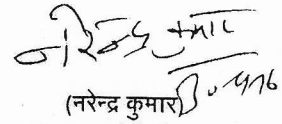 नरेन्द्र कुमार
(नरेन्द्र कुमार)